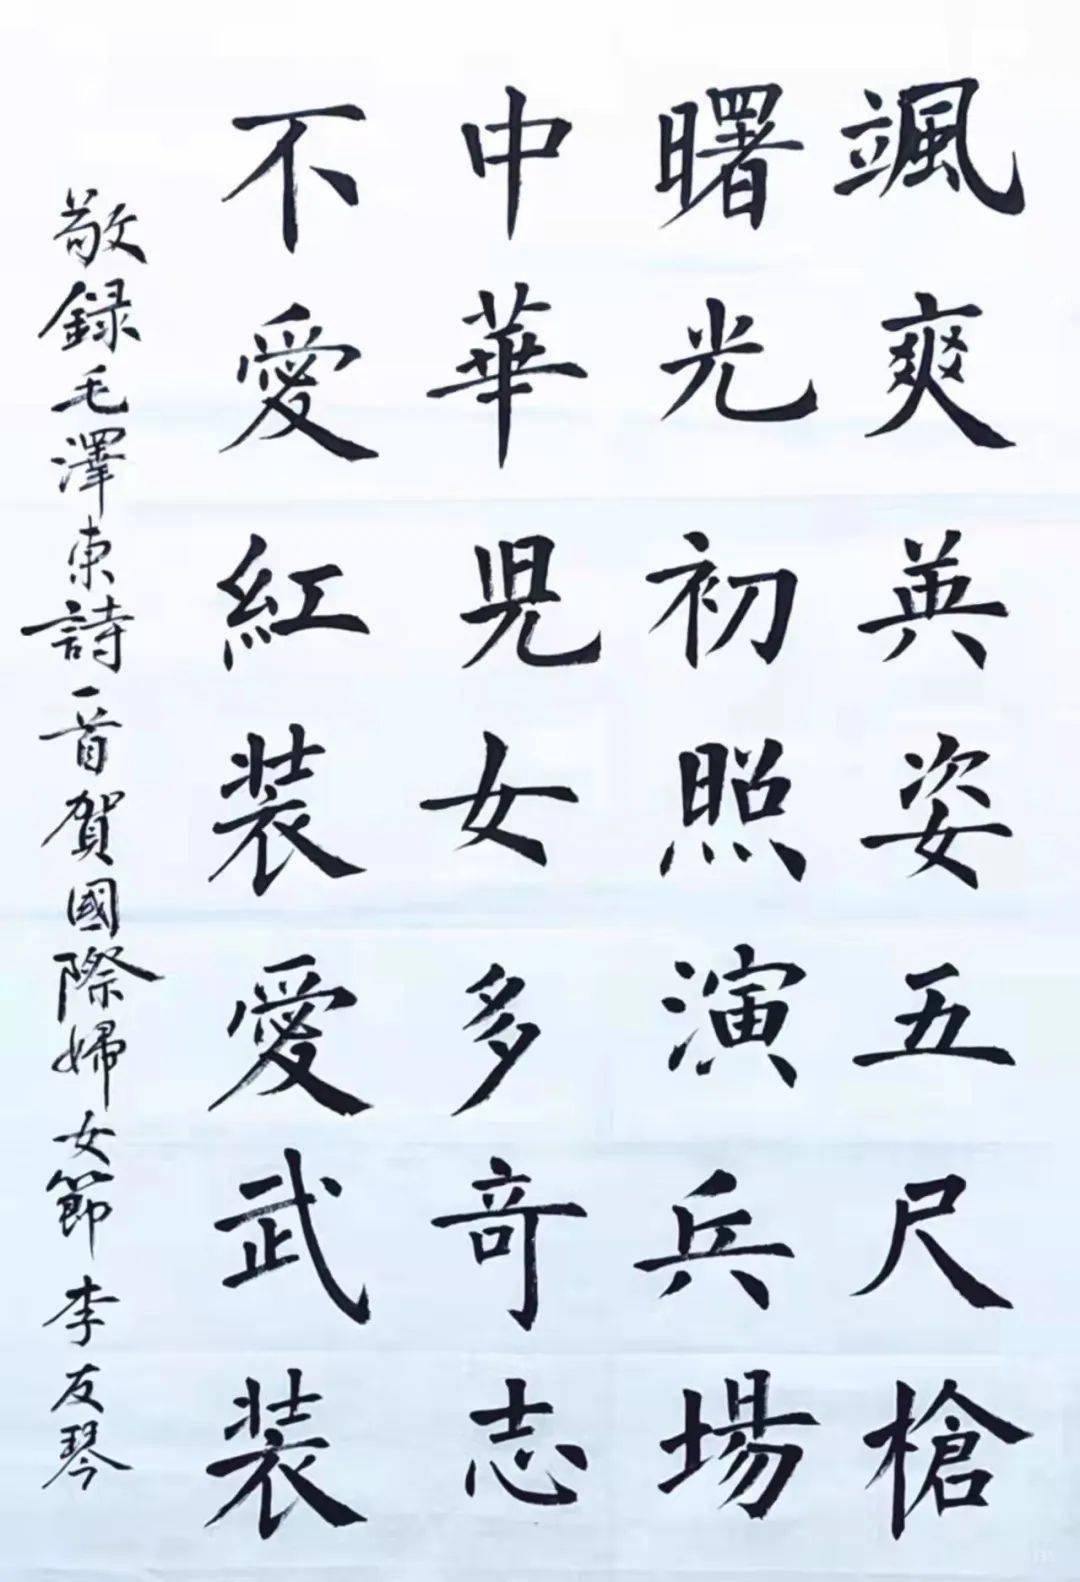 颯爽英姿五尺槍
曙光初照演兵場
中華兒女多奇志
不愛紅裝愛武裝
敬録毛澤東詩一首賀國際婦女節李友琴